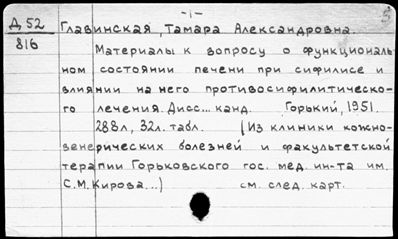 -1-
5
Д 52
816
Главинская, Тамара Александровна.
Материалы к вопросу о функциональ-
ном состоянии печени при сифилисе и
влиянии на него противосифилитическо-
го лечения. Дисс... канд. Горький, 1951.
288л, 32л. табл. (Из клиники кожно-
венерических болезней и факультетской
терапии Горьковского гос. мед. ин-та им.
С.М. Кирова...) см. след. карт.